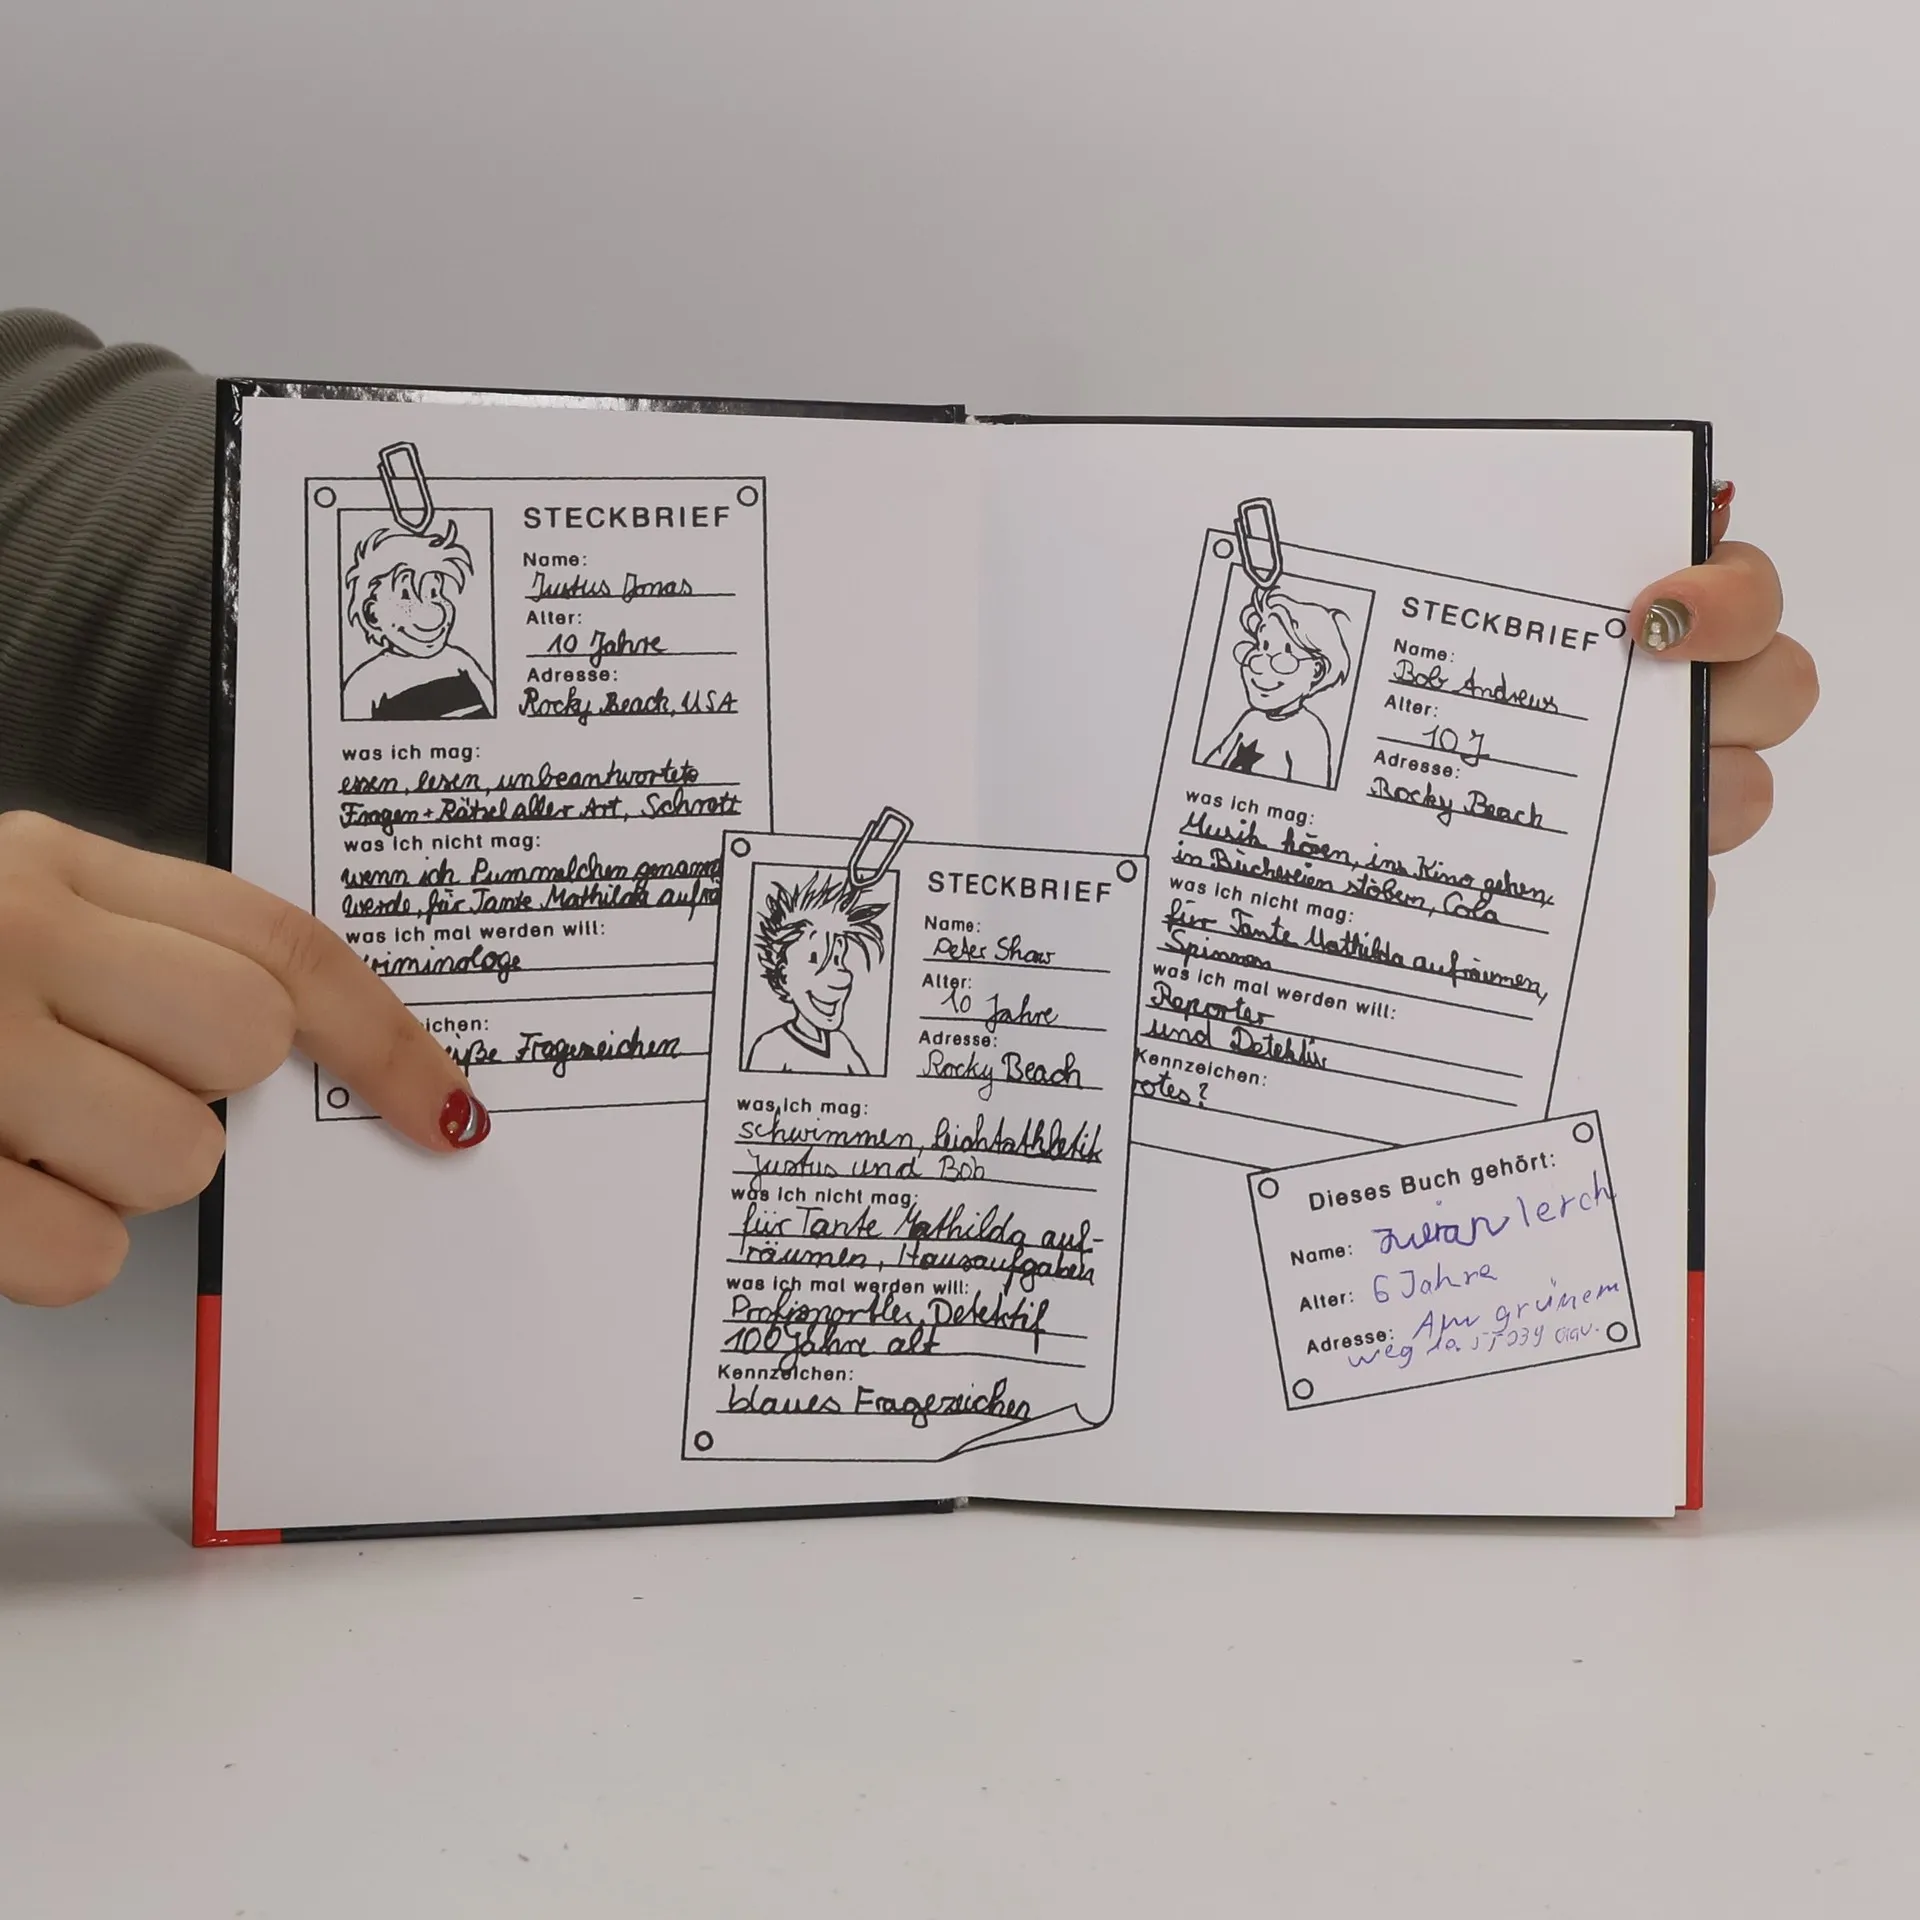 STECKBRIEF
Name:
Justus Jonas
Alter:
10 Jahre
Adresse:
Rocky Beach, USA
was ich mag:
essen, lesen, unbeantwortete
Fragen + Rätsel aller Art, Schrott
was ich nicht mag:
wenn ich Pummelchen genannt
werde, für Tante Mathilda aufrä
was ich mal werden will:
Kriminologe
ichen:
eiße Fragezeichen
STECKBRIEF
Name:
Peter Shaw
Alter:
10 Jahre
Adresse:
Rocky Beach
was ich mag:
schwimmen, Leichtathletik
Justus und Bob
was ich nicht mag:
für Tante Mathilda auf-
räumen, Hausaufgaben
was ich mal werden will:
Profisportler, Detektif
100 Jahre alt
Kennzeichen:
blaues Fragezeichen
STECKBRIEF
Name:
Bob Andrews
Alter:
10 J
Adresse:
Rocky Beach
was ich mag:
Musik hören, ins Kino gehen,
in Büchereien stöbern, Cola
was ich nicht mag:
für Tante Mathilda aufräumen,
Spinnen
was ich mal werden will:
Reporter
und Detektiv
Kennzeichen:
rotes ?
Dieses Buch gehört:
Name: Julian lerch
Alter: 6 Jahre
Adresse: Am grünem
weg